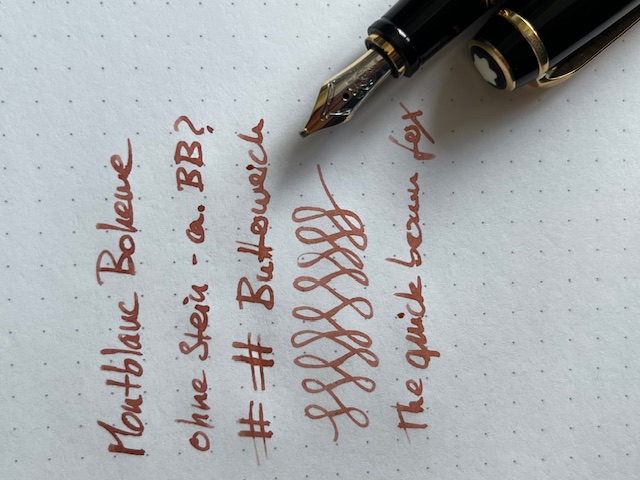 Montblanc Boheme
ohne Stein - ca. BB?
# # Butterweich
The quick brown fox